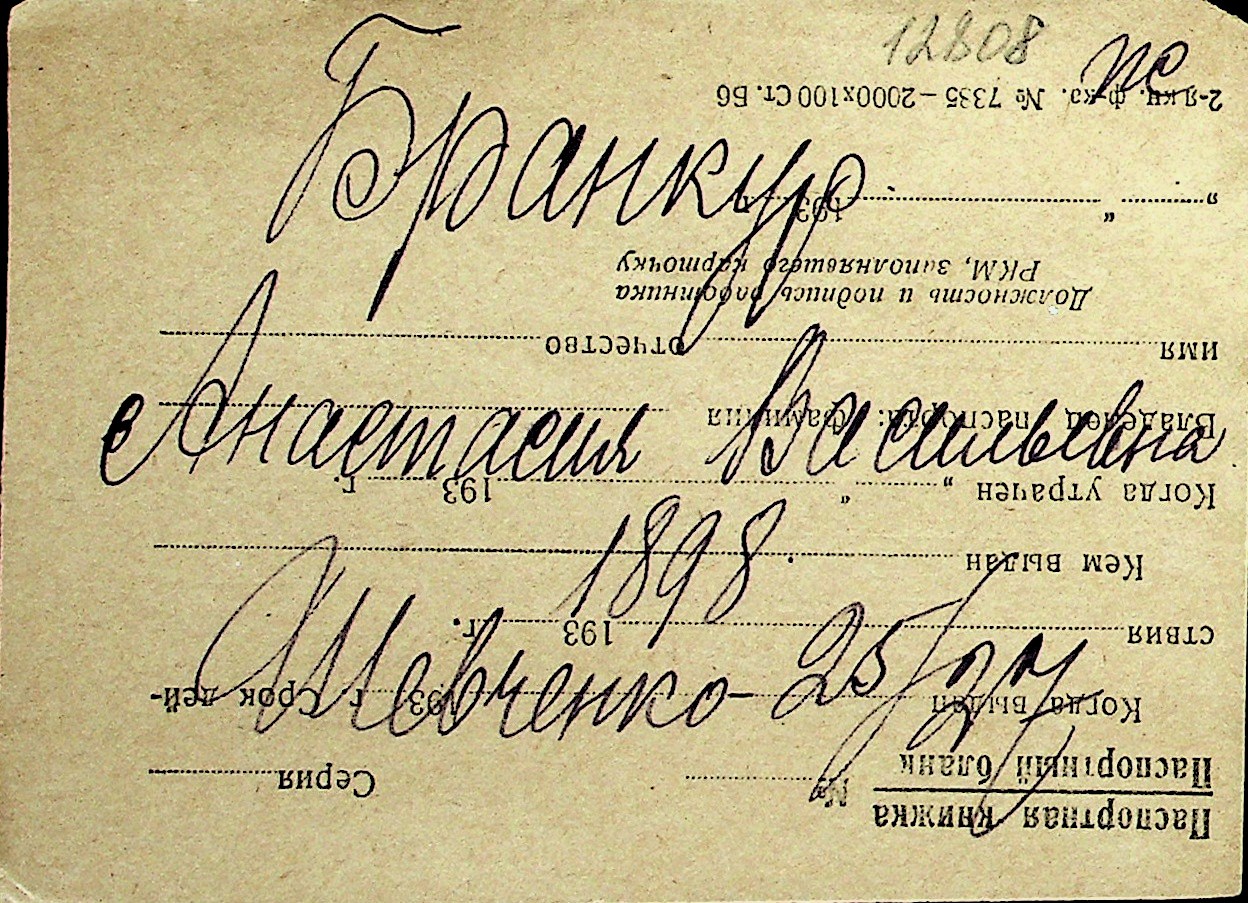 12808
пс
Бранкур
Анастасия Васильевна
1898
Шевченко - 25/27
Паспортная книжка
Паспортный бланк
№ Серия
Когда выдан 193 г. Срок дей-
ствия 193 г.
Кем выдан
Когда утрачен „ “ 193 г.
Владелец паспорта: фамилия
имя отчество
Должность и подпись работника
РКМ, заполнявшего карточку
„ “ 193 г.
2-я кн. ф-ка. № 7335 – 2000х100 Ст. Б6